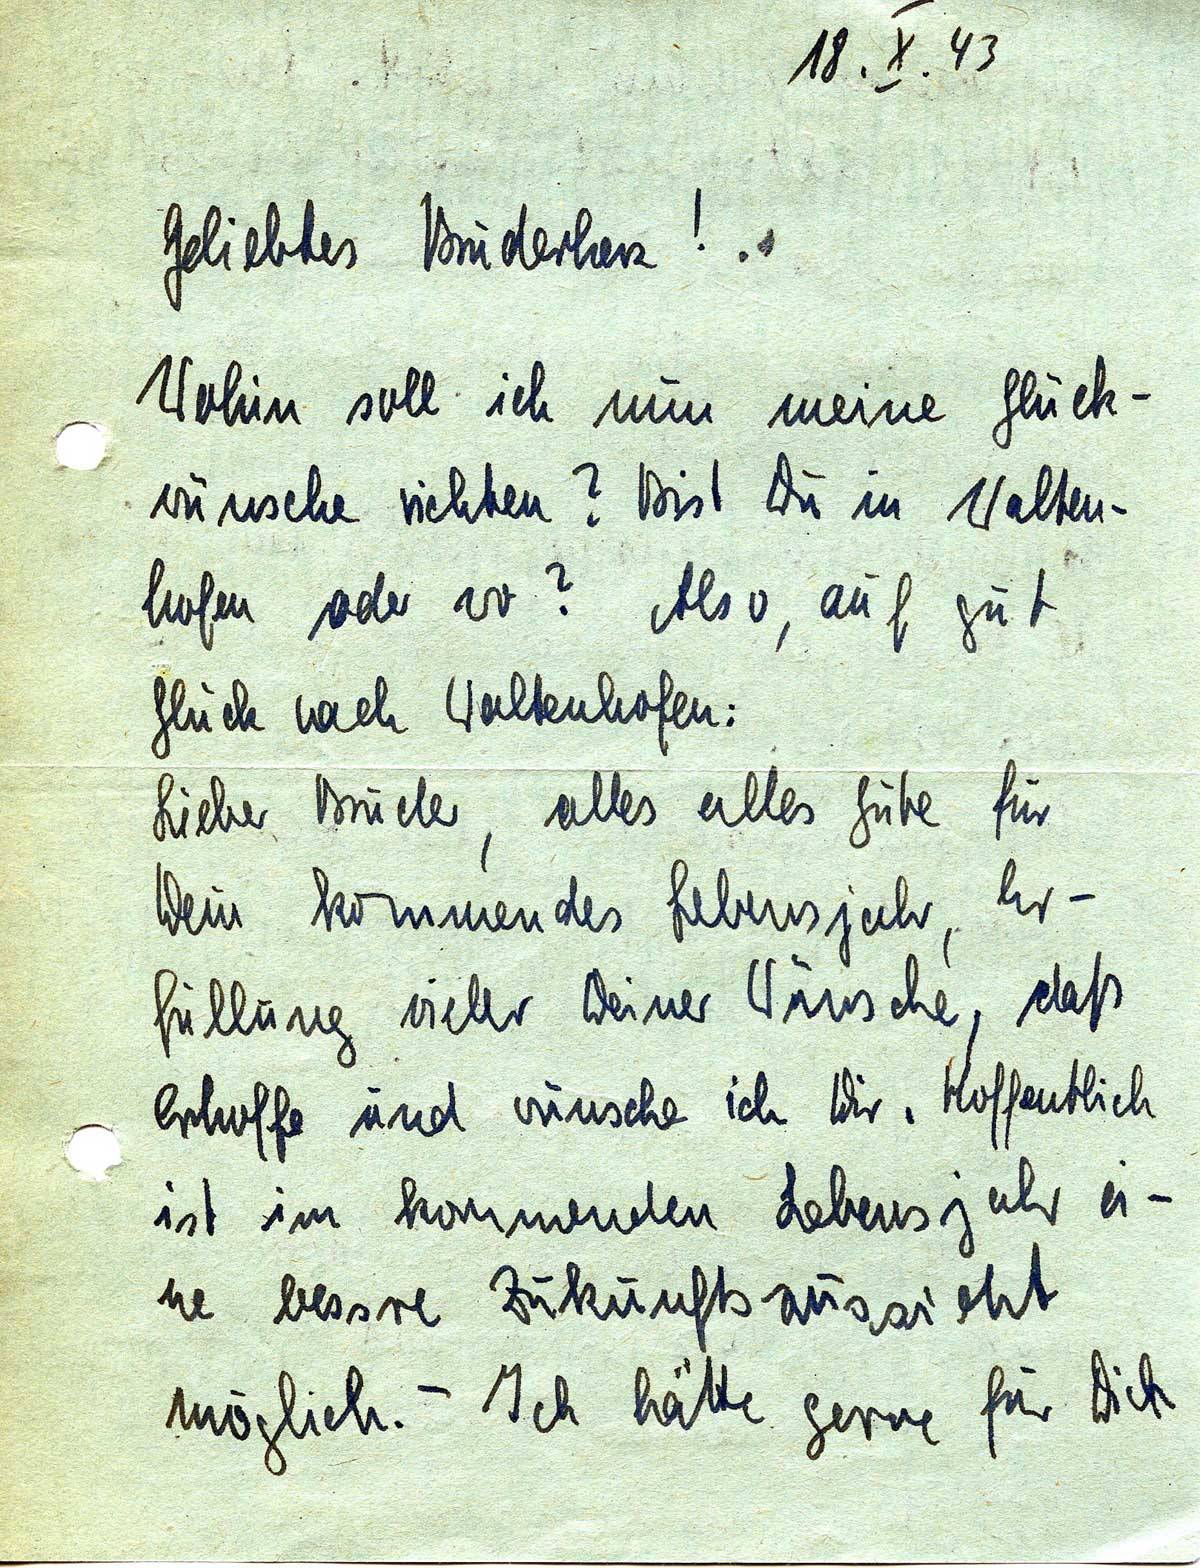 18. X. 43
Geliebtes Bruderherz!..
Wohin soll ich nun meine Glück-
wünsche richten? Bist Du in Walten-
hofen oder wo? Also, auf gut
Glück nach Waltenhofen:
Lieber Bruder, alles alles Gute für
Dein kommendes Lebensjahr, Er-
füllung vieler Deiner Wünsche, daß
erhoffe und wünsche ich Dir. Hoffentlich
ist im kommenden Lebensjahr ei-
ne bessre Zukunftsaussicht
möglich. – Ich hätte gerne für Dich